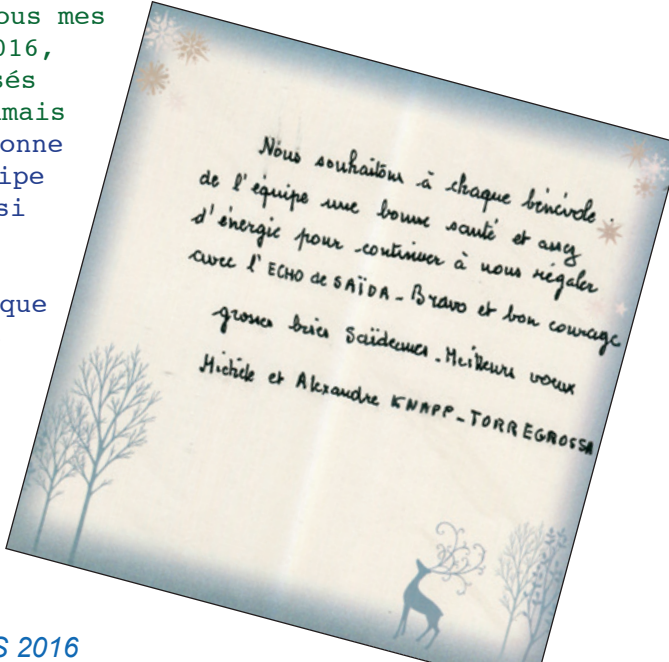 ous mes
016,
sés
mais
onne
ipe
si
que
Nous souhaitons à chaque bénévole.
de l'équipe une bonne santé et assez
d'énergie pour continuer à nous régaler
avec l'ECHO de SAÏDA - Bravo et bon courage
grosses bises Saïdéennes - Meilleurs voeux
Michèle et Alexandre KNAPP-TORREGROSSA
S 2016